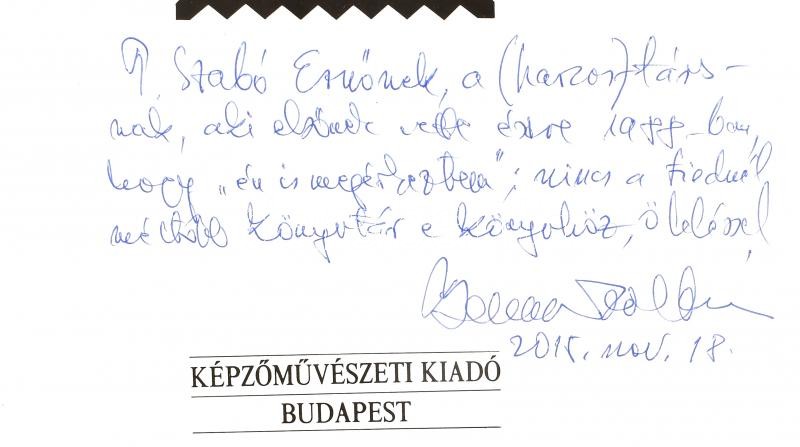 Szabó Ernőnek, a (harcos)társ-
nak, aki elsőnek vette észre 1988-ban,
hogy „én is megérkeztem”; nincs a tiednél
méltóbb könyvtár e könyvhöz, öleléssel,
Zoltán
2015. nov. 18.
KÉPZŐMŰVÉSZETI KIADÓ
BUDAPEST